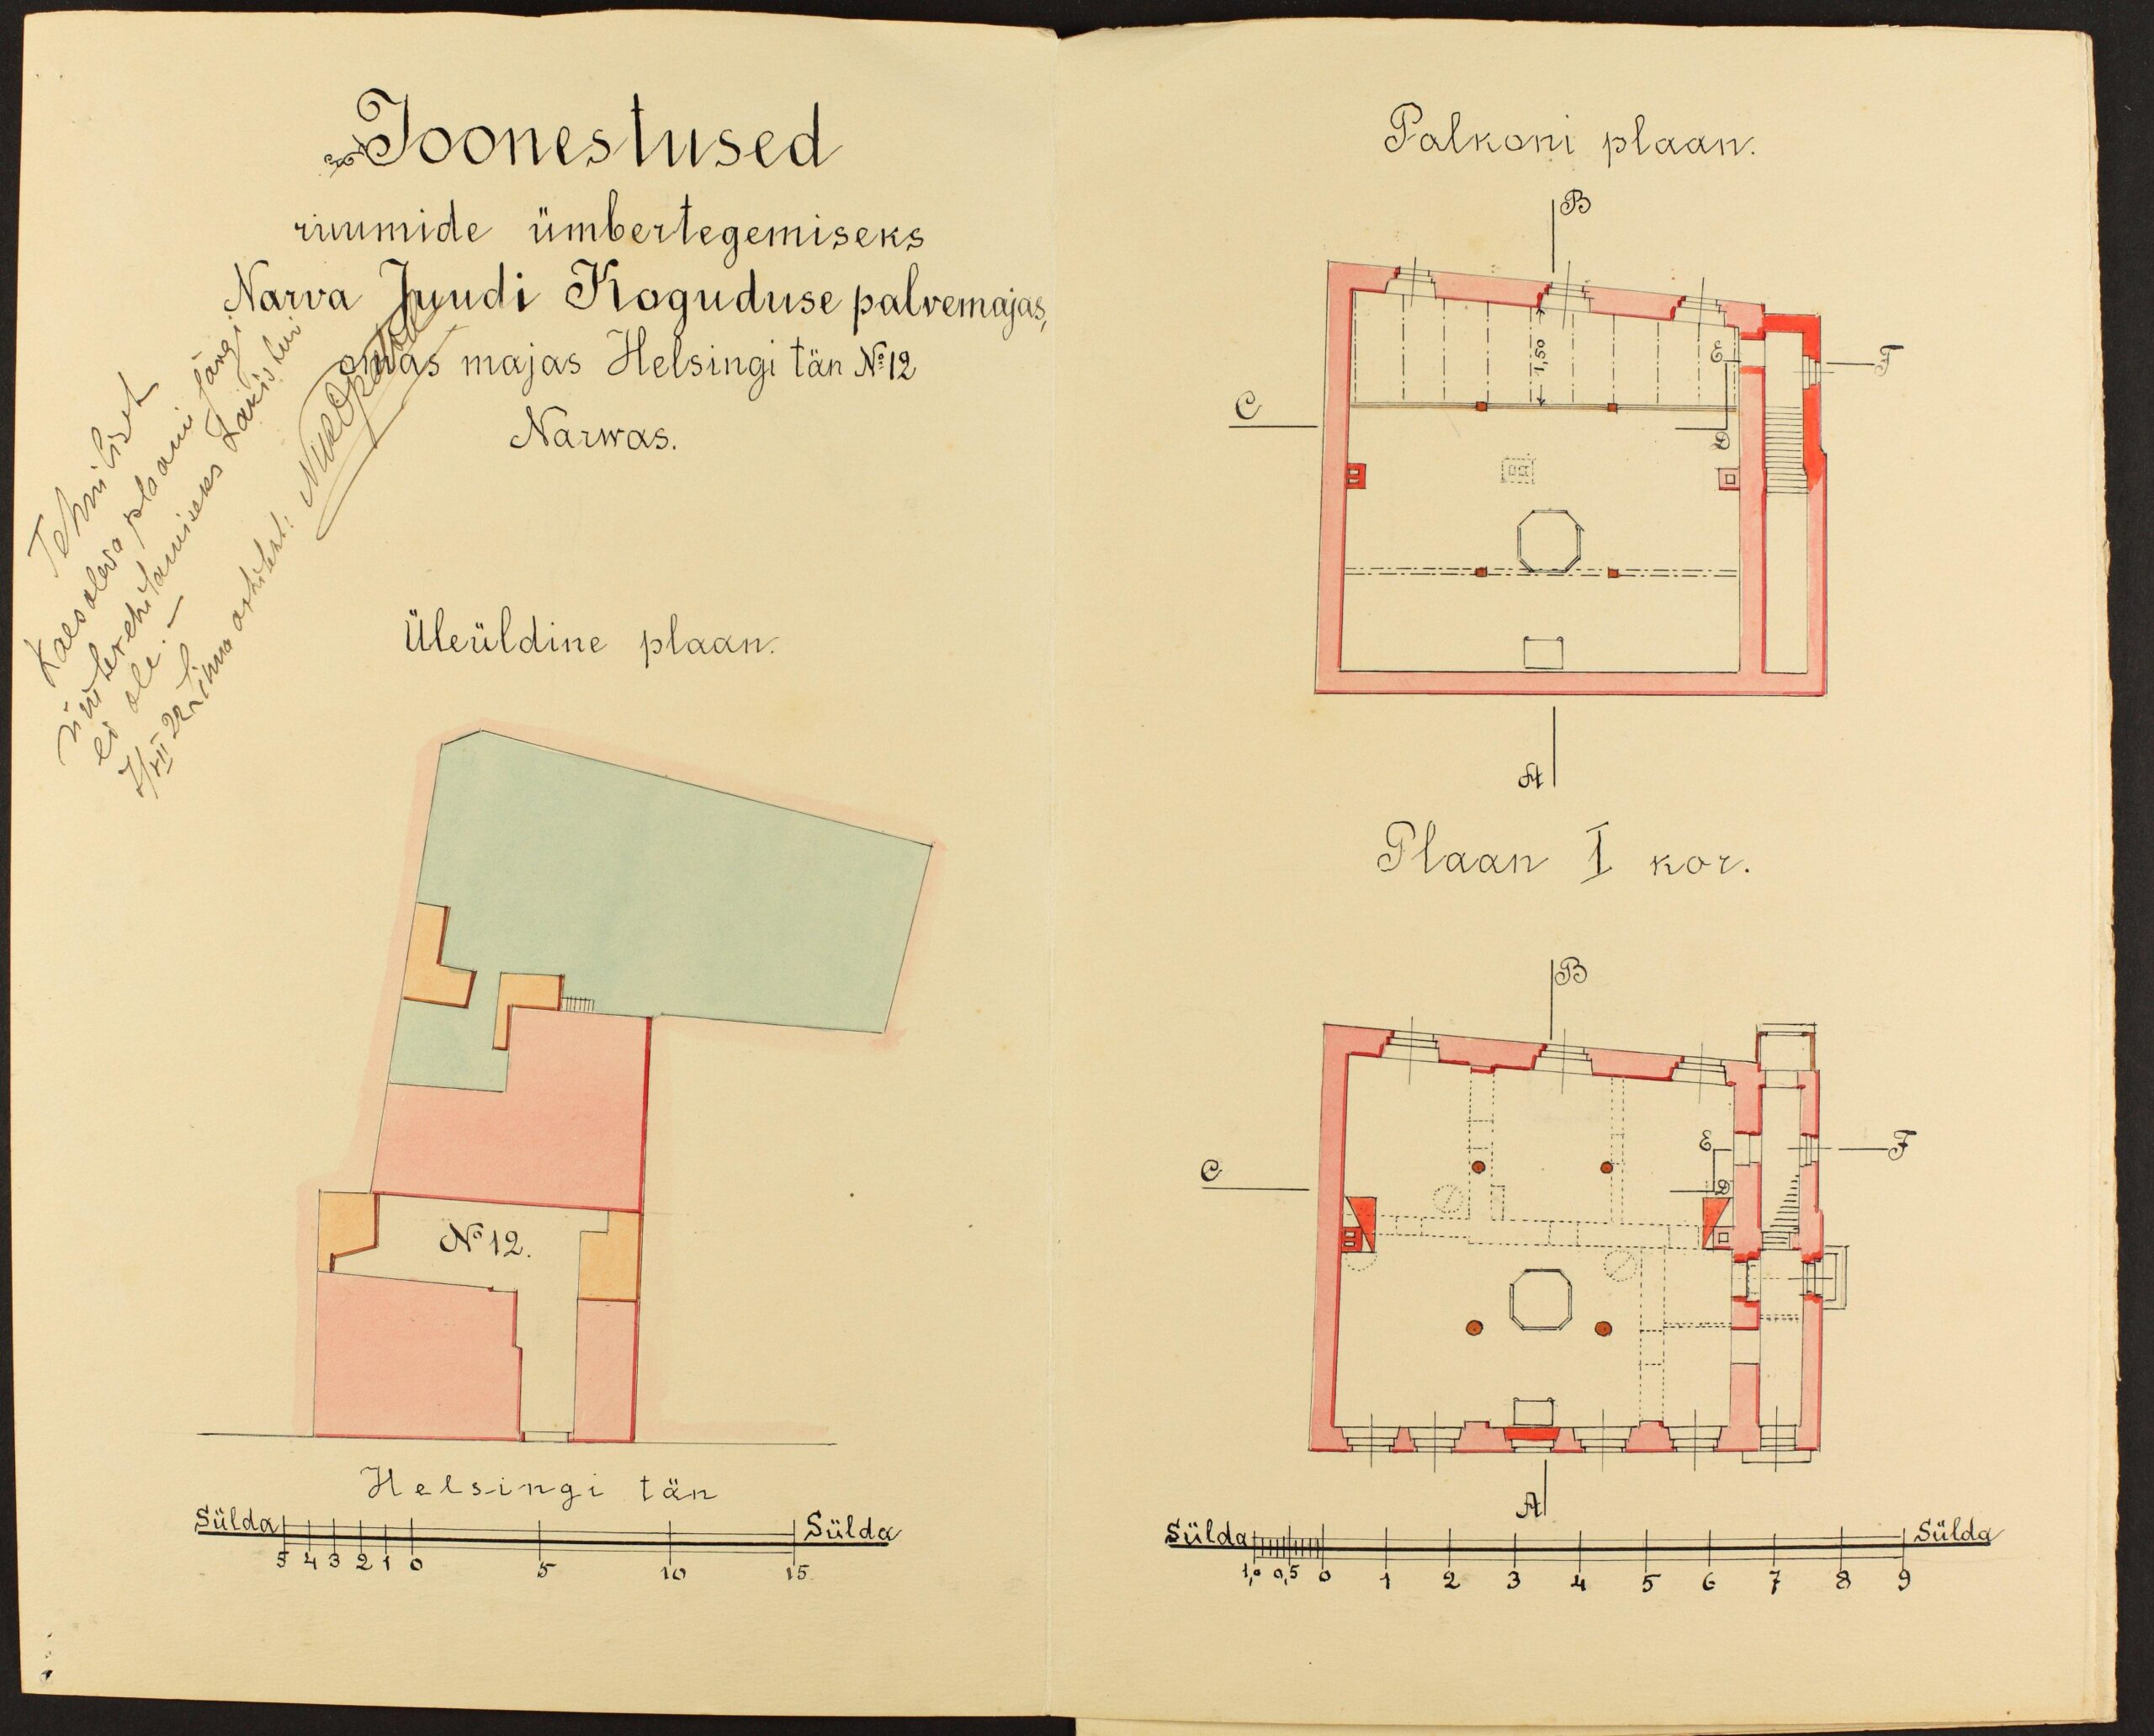 Joonestused
ruumide ümbertegemiseks
Narva Juudi Koguduse palvemajas,
omas majas Helsingi tän № 12
Narwas.
Tehnilist
Kaesoleva plaani järgi
ümberehitamiseks takistusi
ei ole. —
7/XII 22 Linna arhitekt:
Üleüldine plaan.
№ 12.
Helsingi tän
Sülda Sülda
5 4 3 2 1 0 5 10 15
Palkoni plaan.
B
1,50
E F
C
D
A
Plaan I kor.
B
E F
C
D
A
Sülda Sülda
1,0 0,5 0 1 2 3 4 5 6 7 8 9